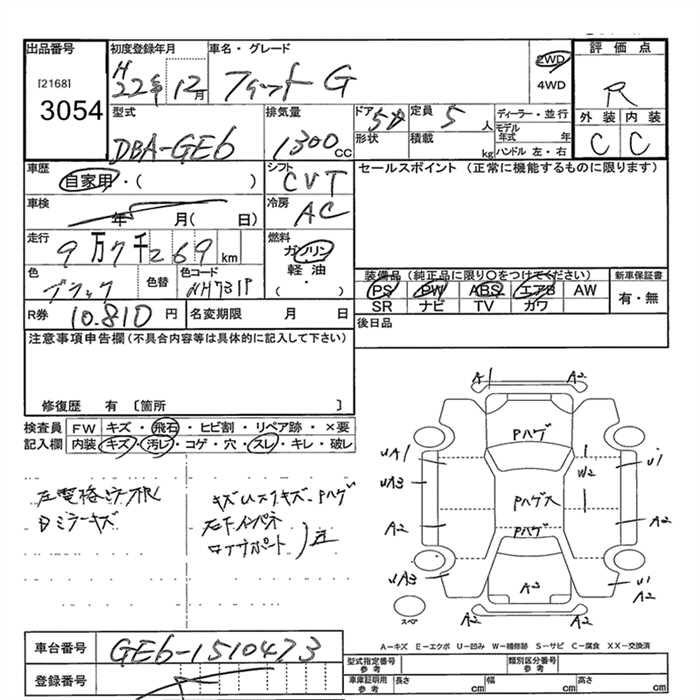 出品番号
[2168]
3054
初度登録年月
H22年 12月
車名・グレード
フィット G
2WD
4WD
評価点
R
外装 内装
C C
型式
DBA-GE6
排気量
1300 cc
ドア 5
形状
定員 5 人
積載 kg
ディーラー・並行
モデル年式 年
ハンドル 左・右
車歴
自家用・( )
シフト
CVT
セールスポイント (正常に機能するものに限ります)
車検
年 月( 日)
冷房
AC
走行
9万7千269 km
燃料
ガソリン
軽油
( ・ )
色
ブラック
色替
色コード
NH731P
装備品 (純正品に限り○をつけてください)
PS PW ABS エアB AW
SR ナビ TV カワ
新車保証書
有・無
R券 10.810 円
名変期限 月 日
後日品
注意事項申告欄(不具合内容等は具体的に記入して下さい)
修復歴 有 〔箇所 〕
検査員記入欄
FW キズ・飛石・ヒビ割・リペア跡・×要
内装 キズ・汚レ・コゲ・穴・スレ・キレ・破レ
キズ Uスリキズ、Pハゲ
ミラーキズ
A1 A2
Pハゲ
UA1 U1
W2
UA3
Pハゲ大
A2 A2
Pハゲ
UA3 A2 U1
A2
A2 A2
スペア
A-キズ E-エクボ U-凹み W-補修跡 S-サビ C-腐食 XX-交換済
車台番号
GE6-1510473
登録番号
型式指定番号
参考
類別区分番号
参考
車庫証明用
参考
長さ cm 幅 cm 高さ cm